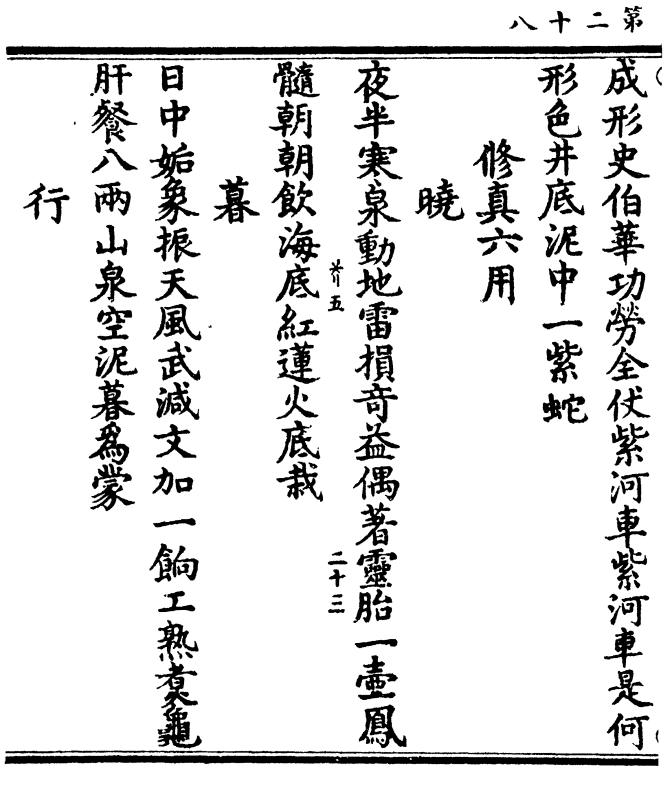 第二十八
成形史伯華功勞全伏紫河車紫河車是何
形色井底泥中一紫蛇
修真六用
曉
夜半寒泉動地雷損奇益偶著靈胎一壺鳳
髓朝朝飲海底紅蓮火底栽
二十三
暮
日中姤象振天風武減文加一餉工熟煮龜
肝餐八兩山泉空泥暮為蒙
行